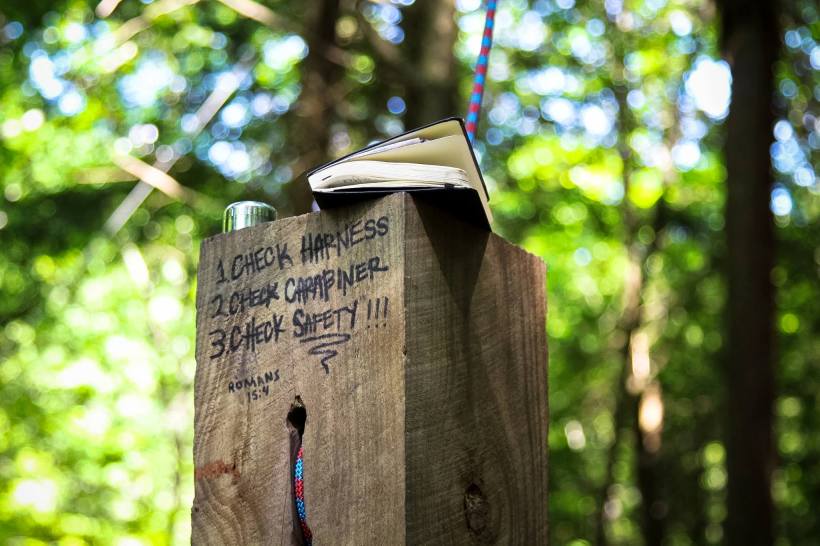 1. CHECK HARNESS
2. CHECK CARABINER
3. CHECK SAFETY !!!
ROMANS
15:4